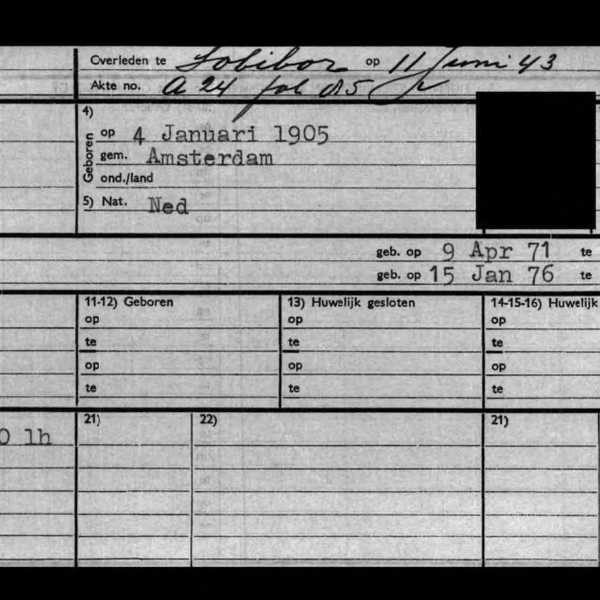 Overleden te Sobibor op 11 Juni 43
Akte no. A 24 fol 85
4)
Geboren
op 4 Januari 1905
gem. Amsterdam
ond./land
5) Nat. Ned
geb. op 9 Apr 71 te
geb. op 15 Jan 76 te
11-12) Geboren 13) Huwelijk gesloten 14-15-16) Huwelijk
op op op
te te te
op op op
te te te
21) 22) 21)
0 1h